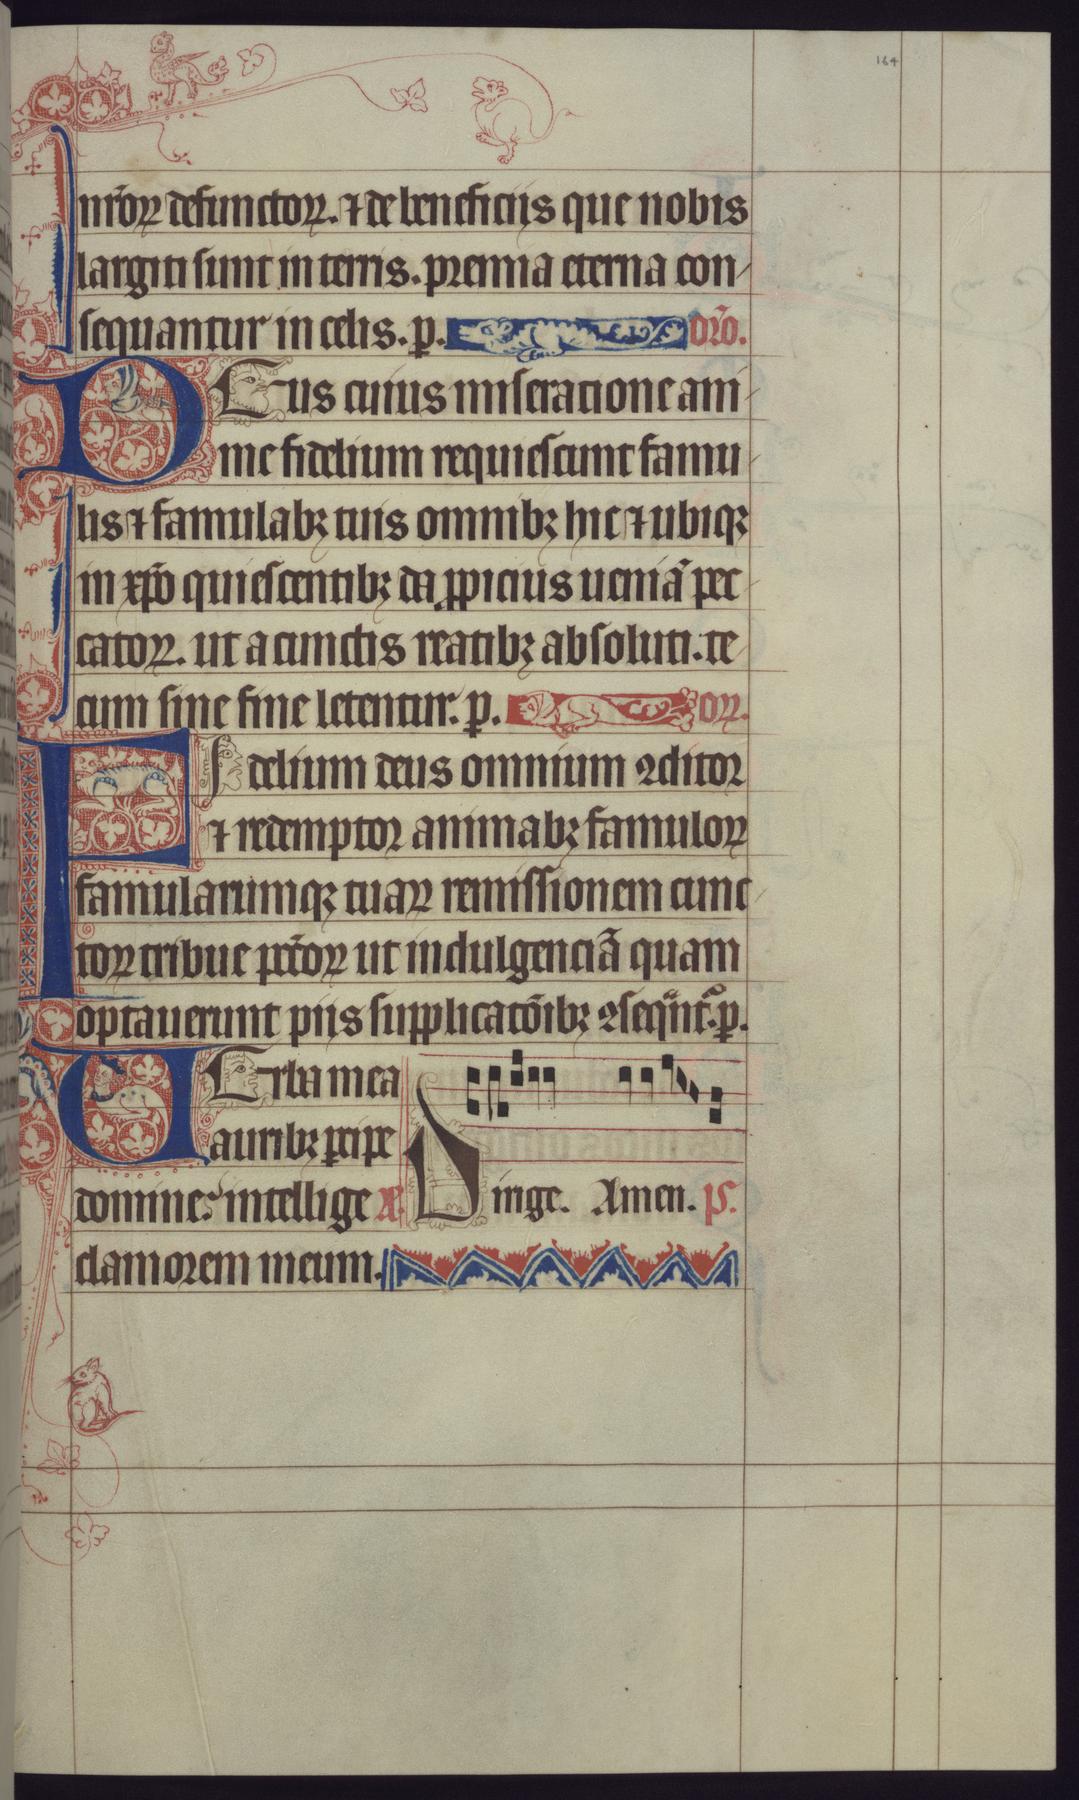 164
nr̄oꝝ defunctoꝝ. ⁊ de beneficijs que nobis
largiti sunt in terris. premia eterna con
sequantur in celis. p. or̄o.
DEus cuius miseratione ani
me fidelium requiescunt famu
lis ⁊ famulabꝫ tuis omnibꝫ hic ⁊ ubiqꝫ
in xp̄o quiescentibꝫ da ꝓpicius ueniā pec
catoꝝ. ut a cunctis reatibꝫ absoluti. te
cum sine fine letentur. p. oꝝ.
FIdelium deus omnium ꝯditor
⁊ redemptor animabꝫ famuloꝝ
famularumqꝫ tuaꝝ remissionem cunc
toꝝ tribue pc̄coꝝ ut indulgenciā quam
optauerunt pijs supplicatōibꝫ ꝯseqͣnt᷑. p.
UErba mea
auribꝫ ꝑcipe
domine: intellige a͞e. Dirige. Amen. ps.
clamorem meum.